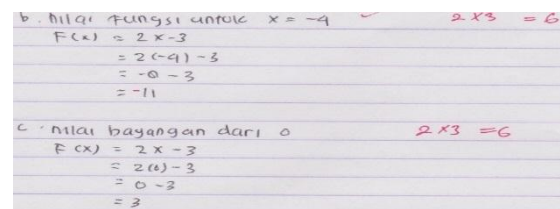 b. nilai fungsi untuk x = -4 2x3 = 6
F(x) = 2x-3
= 2(-4)-3
= -8-3
= -11
c. nilai bayangan dari 0 2x3 = 6
F(x) = 2x-3
= 2(0)-3
= 0-3
= 3